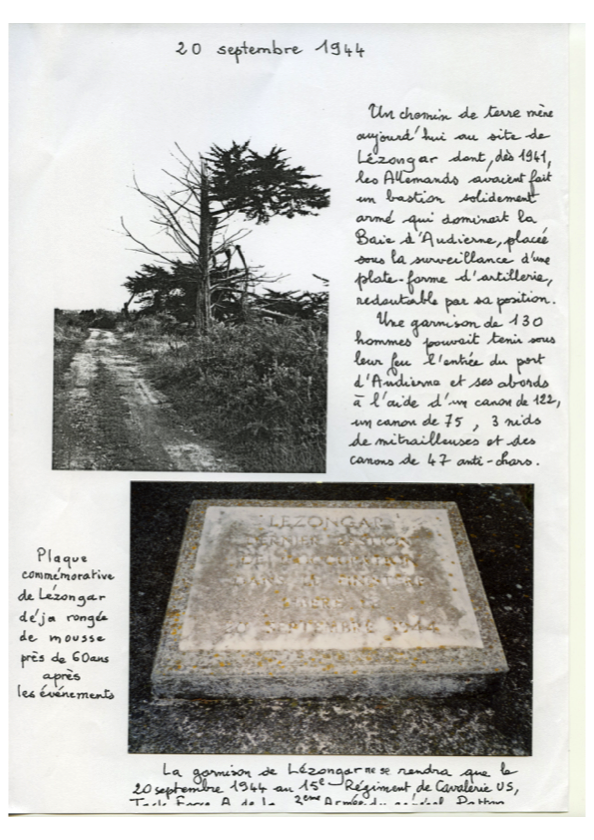 20 septembre 1944
Un chemin de terre mène
aujourd'hui au site de
Lézongar dont, dès 1941,
les Allemands avaient fait
un bastion solidement
armé qui dominait la
Baie d'Audierne, placée
sous la surveillance d'une
plate-forme d'artillerie,
redoutable par sa position.
Une garnison de 130
hommes pouvait tenir sous
leur feu l'entrée du port
d'Audierne et ses abords
à l'aide d'un canon de 122,
un canon de 75, 3 nids
de mitrailleuses et des
canons de 47 anti-chars.
LEZONGAR
DERNIER BASTION
DE L'OCCUPATION
DANS LE FINISTERE
LIBERE LE
20 SEPTEMBRE 1944
Plaque
commémorative
de Lézongar
déja rongée
de mousse
près de 60 ans
après
les événements
La garnison de Lézongar ne se rendra que le
20 septembre 1944 au 15e Régiment de Cavalerie US,
Task Force A de la 2eme Armée du général Patton